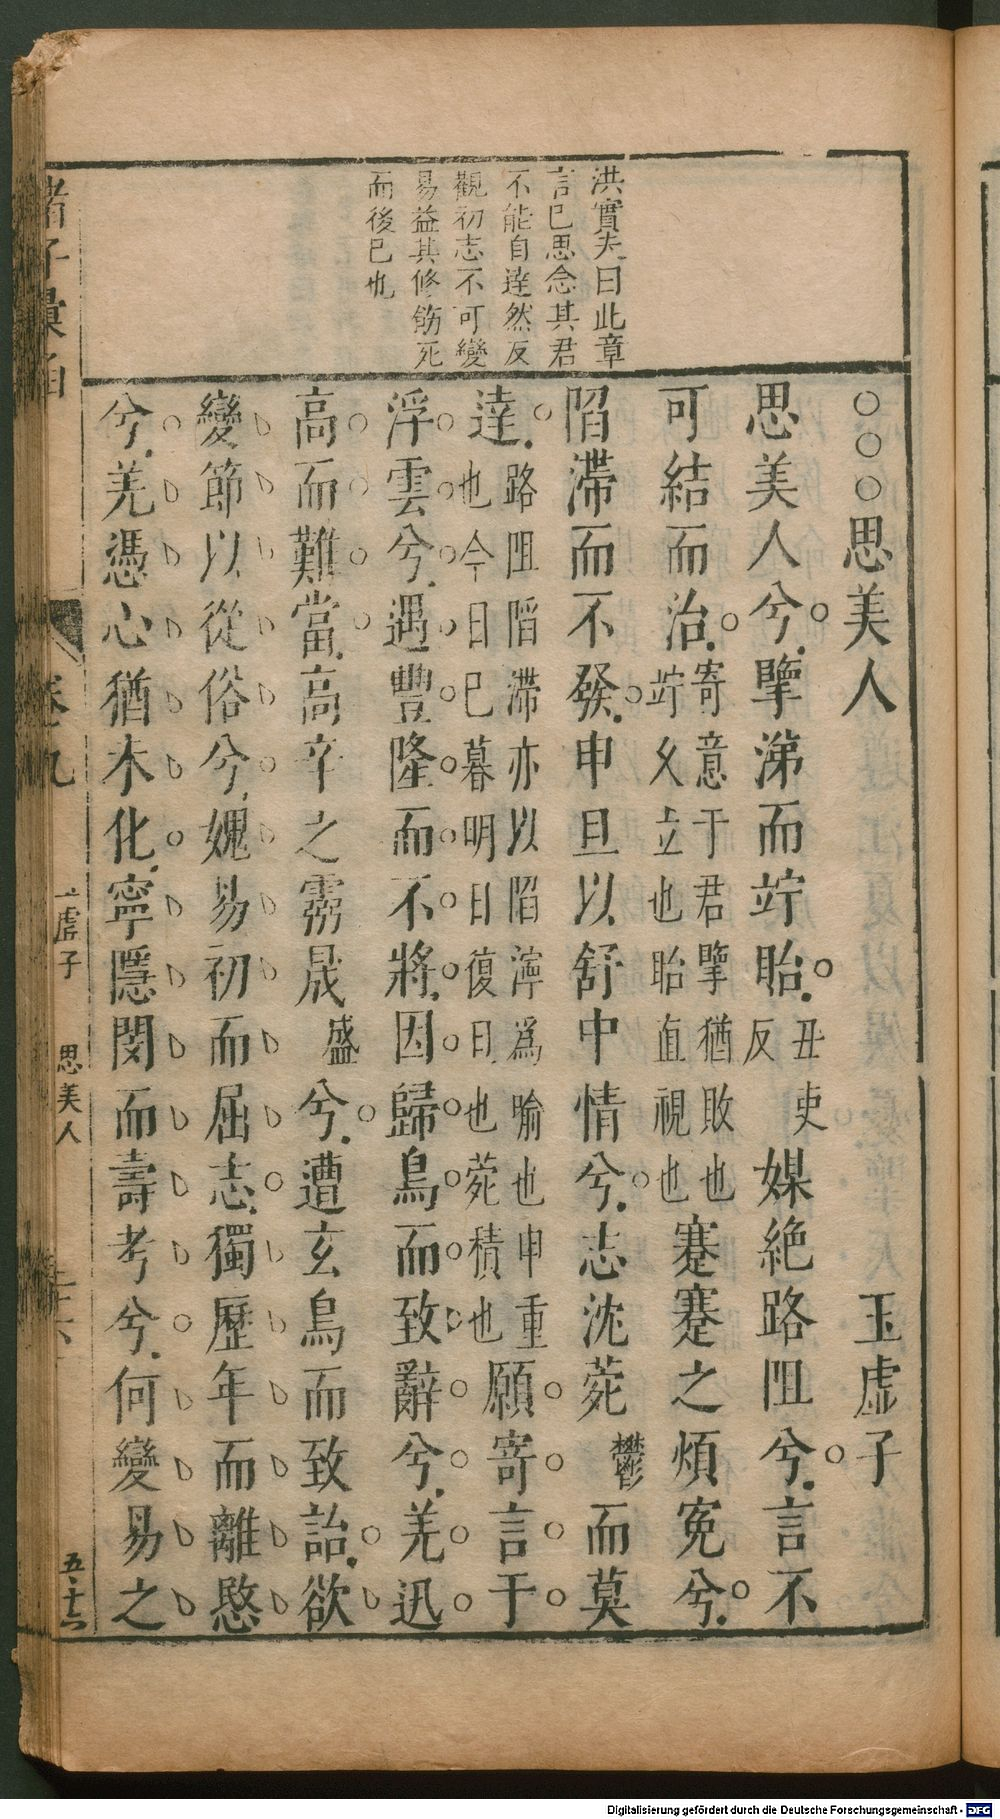 洪實夫曰此章
言已思念其君
不能自達然反
觀初志不可變
易益其修飭死
而後已也
○○○思美人 玉虛子
思美人兮擥涕而竚眙丑吏反媒絕路阻兮言不
可結而治寄意于君擥猶敗也竚乆立也眙直視也蹇蹇之煩冤兮
陷滯而不發申旦以舒中情兮志沈菀鬱而莫
達路阻陷滯亦以陷濘爲喻也申重也今日已暮明日復旦也菀積也願寄言于
浮雲兮遇豐隆而不將因歸鳥而致辭兮羌迅
高而難當高辛之靈晟盛兮遭玄鳥而致詒欲
變節以從俗兮媿易初而屈志獨歷年而離愍
兮羌憑心猶未化寧隱閔而壽考兮何變易之
諸子彙函
卷九
玉虛子 思美人
五十六
Digitalisierung gefördert durch die Deutsche Forschungsgemeinschaft - DFG